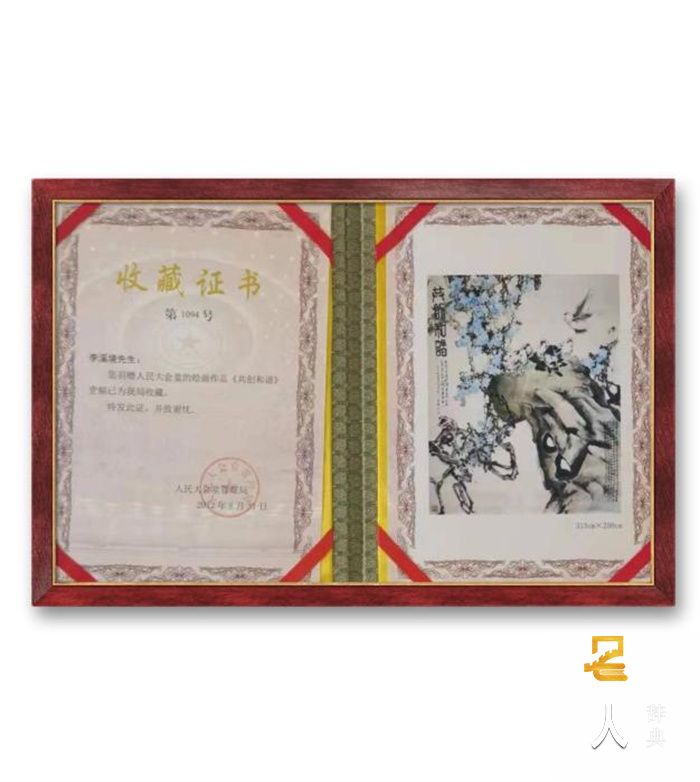 收藏证书
第 1094 号
李溪境先生：
您捐赠人民大会堂的绘画作品《共创和谐》
壹幅已为我局收藏。
特发此证，并致谢忱。
人民大会堂管理局
2012年8月31日
共创和谐
315cm×200cm
名
人
辞典